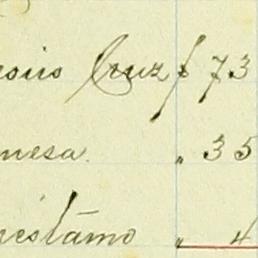 esús Cruz $ 73
mesa. " 35
restamo " 4